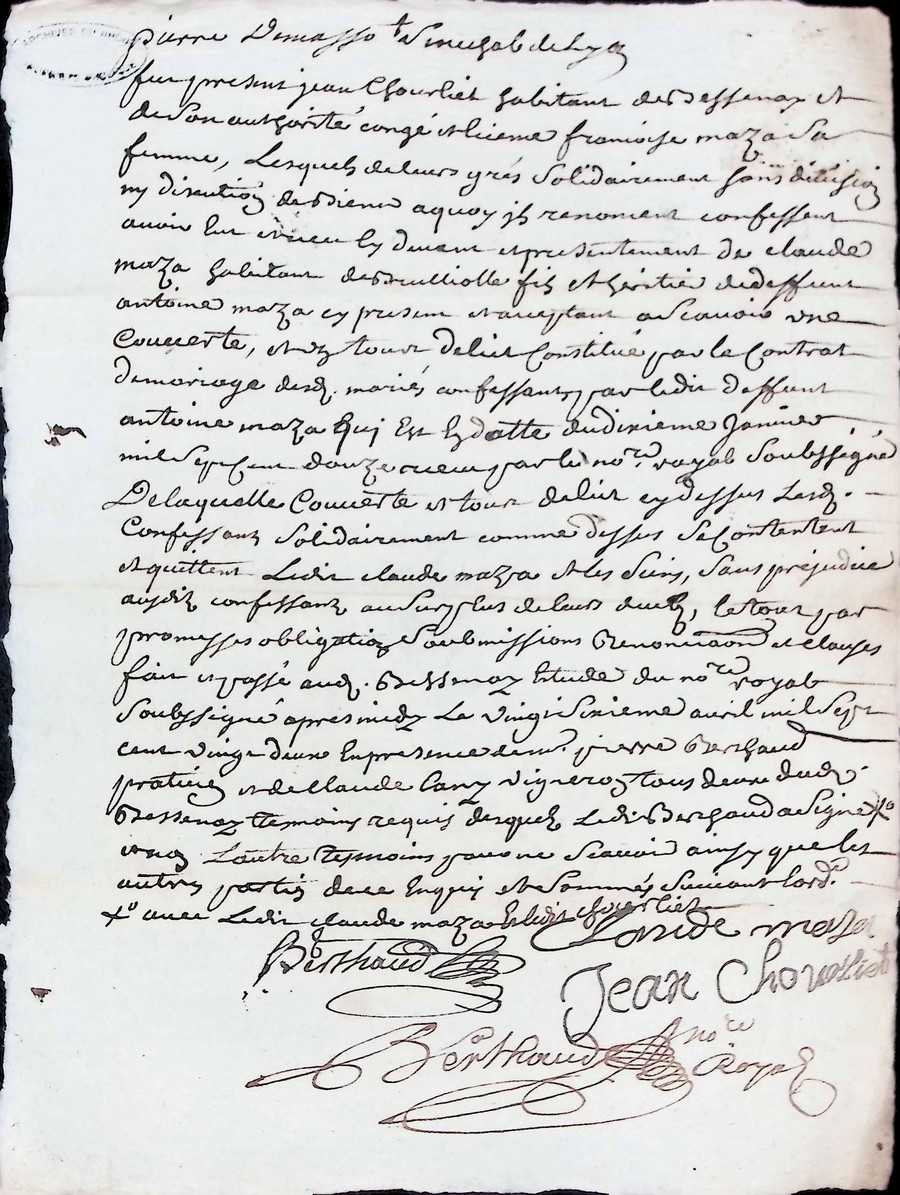 ARCHIVES DU RHÔNE
pierre Demasso st Senechal de Lyon
fut present jean Chourliet habitant de Bessenay et
de Son authorité congé et licence françoise maza Sa
femme, Lesquels de leurs grés Solidairement sans division
ny discution de Biens aquoy jls renoncent confessent
avoir Eut et receu Cy devant et presentement de claude
maza habitant de Brulliolle filz et heritier de deffunt
antoine maza cy present et acceptant a Scavoir une
Couverte, et un tour de lict Constitué par le Contrat
de mariage desd. mariés confessantz par ledit deffunt
antoine maza Quj Est En datte du dixieme Janvier
mil Sept Cent douze receu par le nore. royal Soubssigné
De laquelle Couverte et tour de lict cy dessus Lesd.
Confessantz Solidairement comme dessus Se Contentent
et quittent Ledit claude maza et les Siens, Sans prejudice
ausditz confessantz au Surplus de leurs deubz, le tout par
promesses obligation Soubmissions Renonciaons et clauses
fait et passé aud. Bessenay Etude du nore royal
Soubssigné apres midy Le vingt Sixieme avril mil Sept
cent vingt deux En presence de mr. pierre Berthaud
praticien et de Claude Cany vigneron tous deux dud.
Bessenay temoins requis desquelz Ledit Berthaud a Signé xo
et non Lautre tesmoins pour ne Scavoir ainsy que les
autres parties de ce Enquis et Sommés Suivant lord.
xo avec Ledit claude maza Et ledit Chourliet
Claude maza
Berthaud
Jean Chovrliet
Berthaud nore
Royal